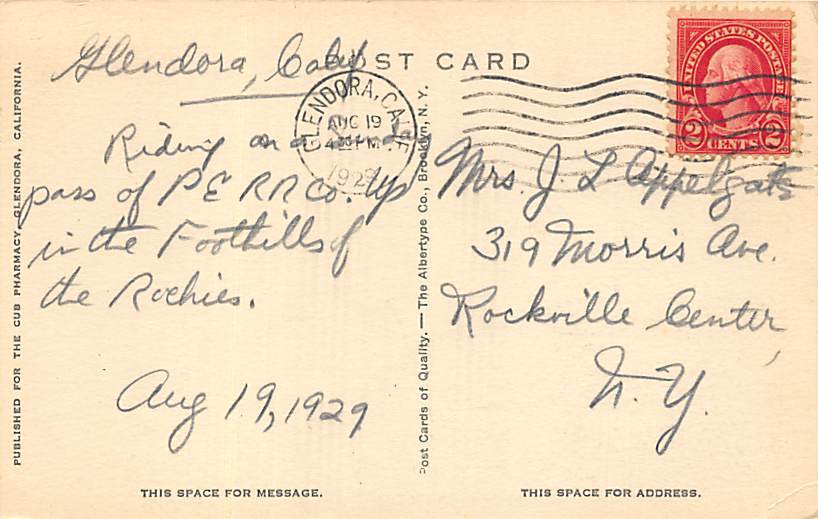 POST CARD
Glendora, Calif
GLENDORA, CALIF.
AUG 19
4 PM
1929
UNITED STATES POSTAGE
2 CENTS 2
Riding on a
pass of P E RR Co. up
in the Foothills of
the Rockies.
Aug 19, 1929
Mrs. J L Appelgate
319 Morris Ave.
Rockville Center,
N. Y.
PUBLISHED FOR THE CUB PHARMACY, GLENDORA, CALIFORNIA.
Post Cards of Quality. — The Albertype Co., Brooklyn, N. Y.
THIS SPACE FOR MESSAGE.
THIS SPACE FOR ADDRESS.